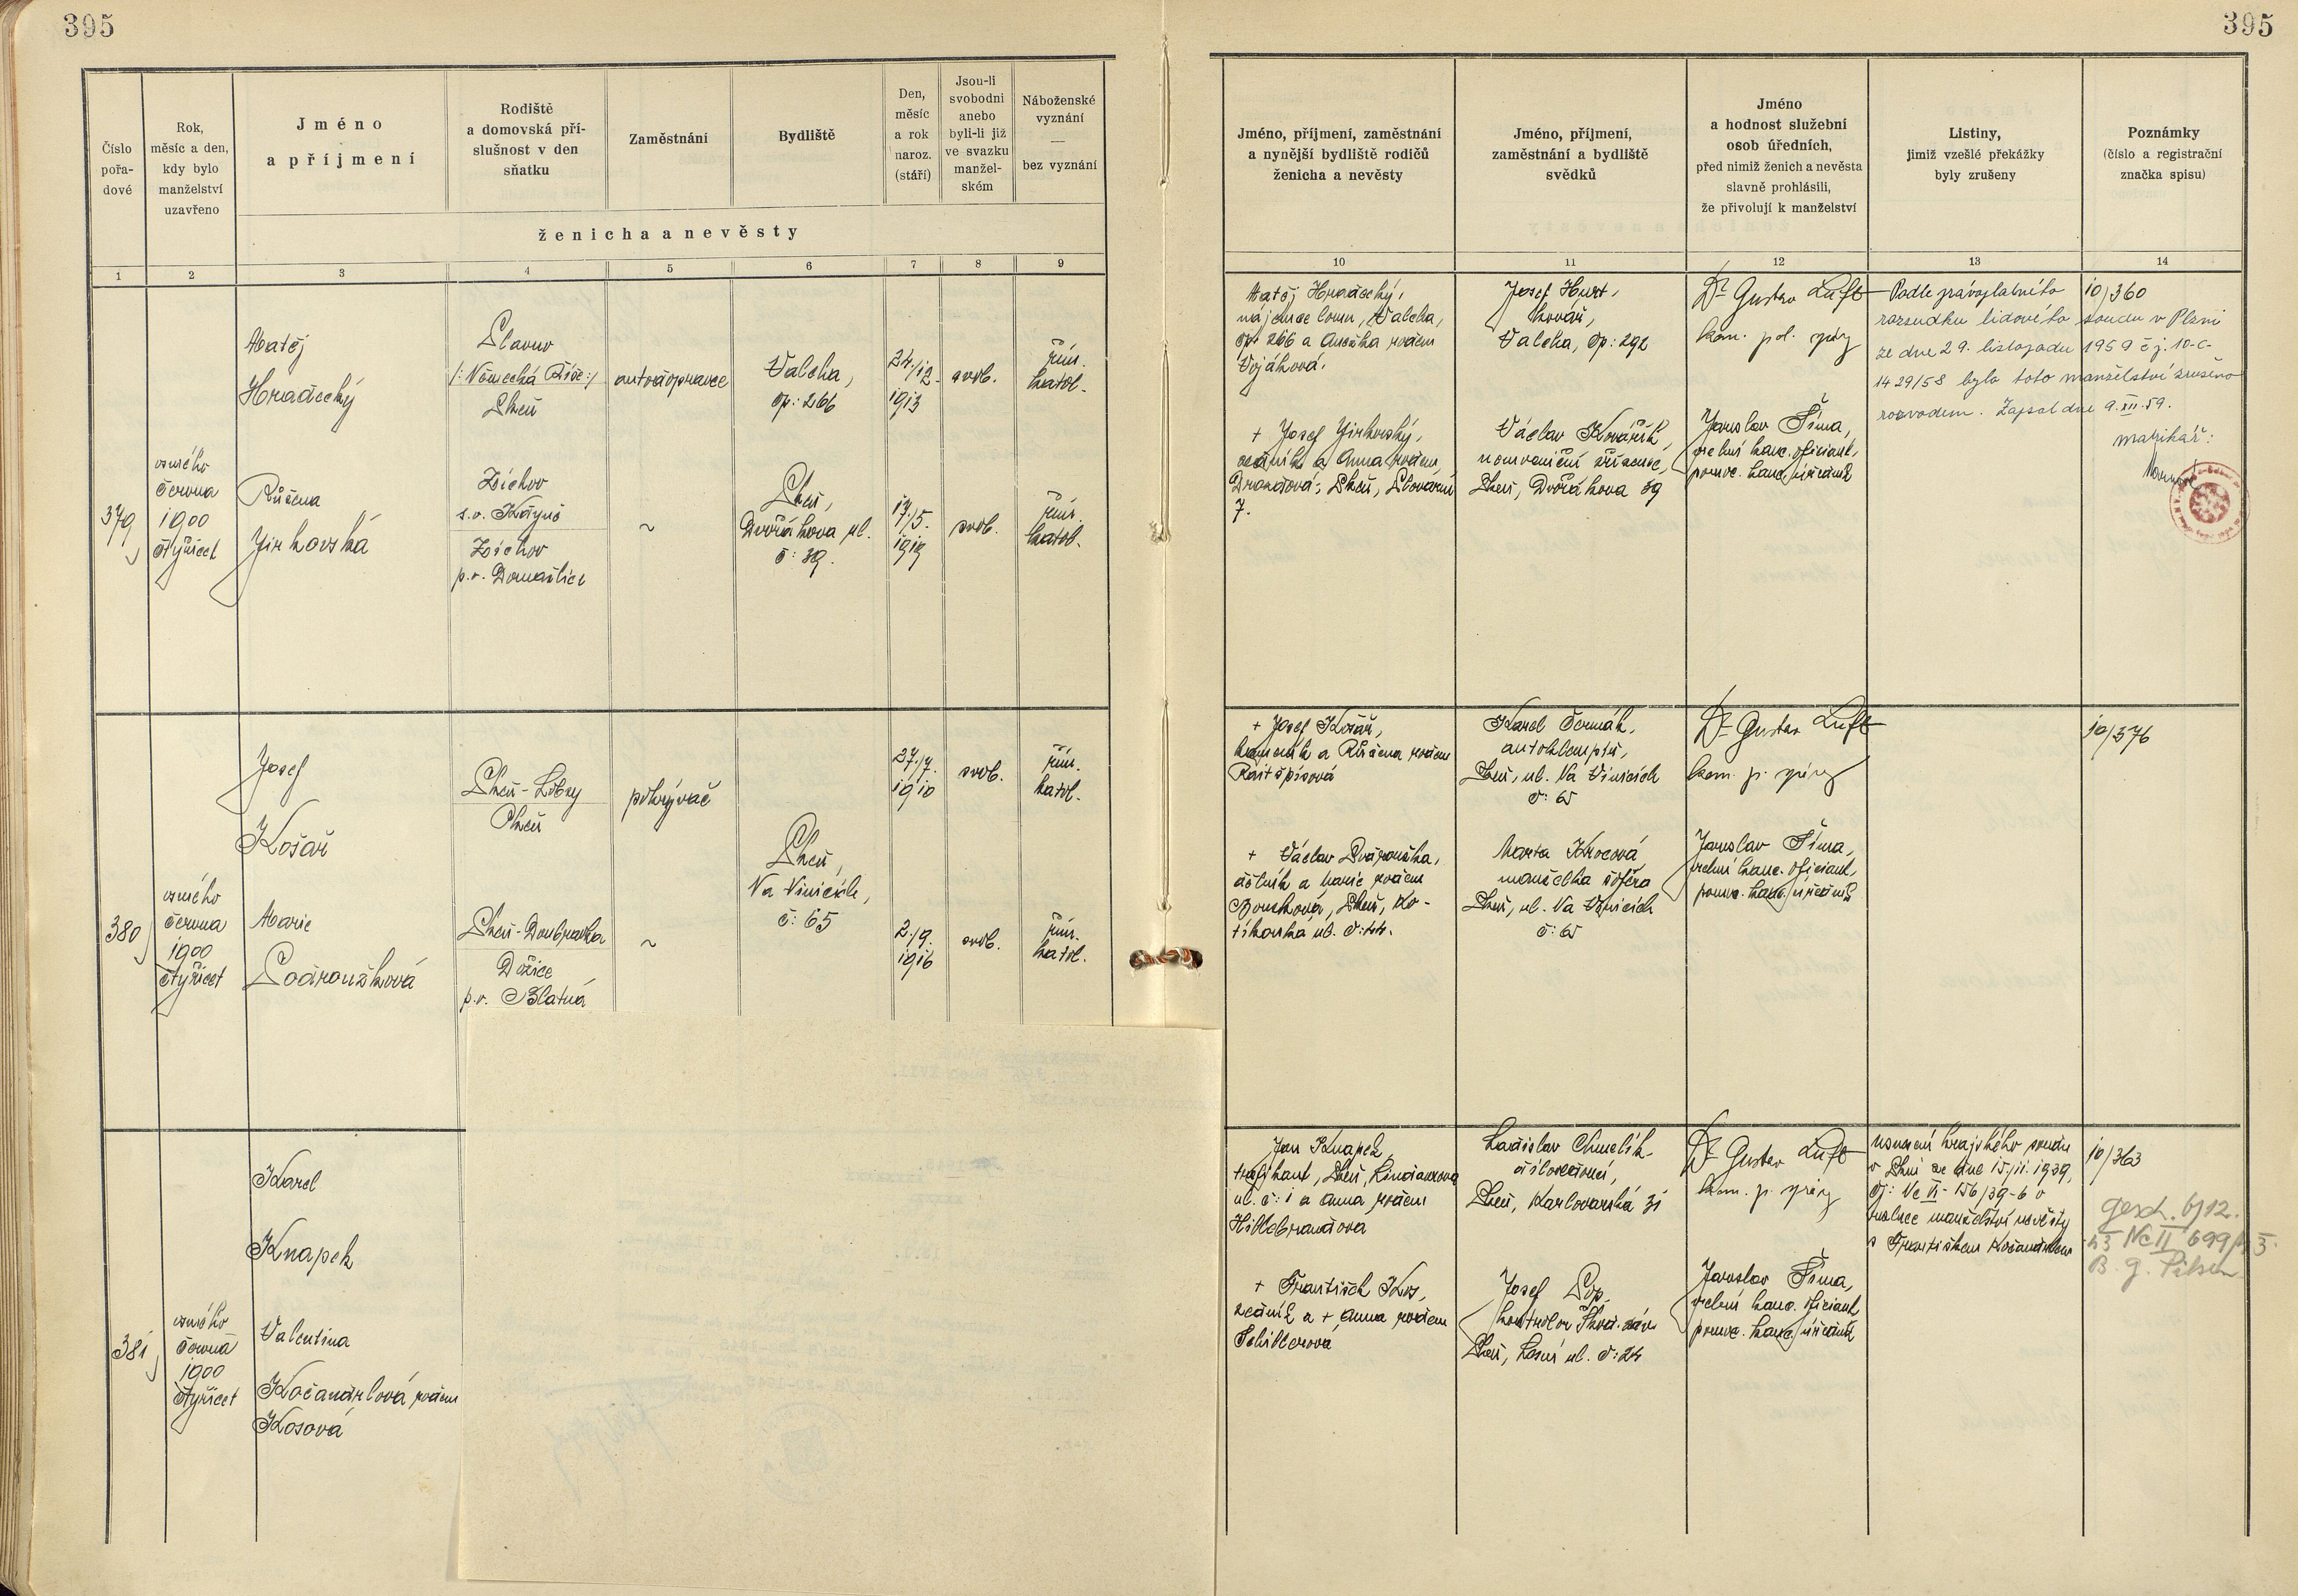 395
395
Číslo
pořa-
dové
Rok,
měsíc a den,
kdy bylo
manželství
uzavřeno
Jméno
a příjmení
Rodiště
a domovská pří-
slušnost v den
sňatku
Zaměstnání
Bydliště
Den,
měsíc
a rok
naroz.
(stáří)
Jsou-li
svobodni
anebo
byli-li již
ve svazku
manžel-
ském
Náboženské
vyznání
—
bez vyznání
ženicha a nevěsty
Jméno, příjmení, zaměstnání
a nynější bydliště rodičů
ženicha a nevěsty
Jméno, příjmení,
zaměstnání a bydliště
svědků
Jméno
a hodnost služební
osob úředních,
před nimiž ženich a nevěsta
slavně prohlásili,
že přivolují k manželství
Listiny,
jimiž vzešlé překážky
byly zrušeny
Poznámky
(číslo a registrační
značka spisu)
1 2 3 4 5 6 7 8 9
10 11 12 13 14
379
osmého
června
1900
čtyřicet
Matěj
Hradecký
/: Německá Říše:/
Plzeň
autodopravce
Valcha,
čp: 266
24./12.
1913
svob.
řím.
katol.
Růžena
Jirkovská
s.o. Kdyně
p.o. Domažlice
~
Plzeň,
Dvořákova ul.
č: 39.
17./5.
1919
svob.
řím.
katol.
Matěj Hradecký,
nájemce lomu, Valcha,
čp: 266 a Anežka rozen
Vojáková.
+ Josef Jirkovský,
zedník a Anna rozen
Plzeň,
7.
Josef
kovář,
Valcha, čp: 292
Václav Kovářík,
zřízenec,
Plzeň, Dvořákova 39
Dr Gustav Luft
kom. pol. správy
Jaroslav Šíma,
kanc. oficiant,
pomoc. kanc. úředník
Podle právoplatného
rozsudku lidového soudu v Plzni
ze dne 29. listopadu 1959 č j. 10-C-
1429/58 bylo toto manželství zrušeno
rozvodem. Zapsal dne 9. XII. 59.
matrikář:
10/360
380
osmého
června
1900
čtyřicet
Josef
Košař
Plzeň-Lobzy
Plzeň
pokrývač
Plzeň,
Na Vinicích,
č: 65
27./7.
1910
svob.
řím.
katol.
Marie
Podroužková
Plzeň-Doubravka
Dožice
p.o. Blatná
~
2./9.
1916
svob.
řím.
katol.
+ Josef Košař,
kameník a Růžena rozen
+ Václav Podroužka,
dělník a Marie rozen
Boušková, Plzeň, Ko-
tíkovská ul. č: 44.
Karel Čermák,
autoklempíř,
Plzeň, ul. Na Vinicích
č: 65
Marta Krocová
manželka šoféra
Plzeň, ul. Na Vinicích
č: 65
Dr Gustav Luft
kom. p. správy
Jaroslav Šíma,
kanc. oficiant,
pomoc. kanc. úředník
10/376
381
osmého
června
1900
čtyřicet
Karel
Knapek
Valentina
Kočandrlová rozen
Kosová
Jan Knapek,
trafikant, Plzeň,
ul. č: 1 a Anna rozen
Hillebrandova
+ František Kos,
zedník a + Anna rozen
Schillerová
Ladislav Chmelík
Plzeň, Karlovarská 31
Josef Pop,
kontrolor Škod. záv.
Plzeň, Lesní ul. č: 24
Dr Gustav Luft
kom. p. správy
Jaroslav Šíma,
kanc. oficiant
pomoc. kanc. úředník
Usnesení krajského soudu
v Plzni ze dne 15./11. 1939,
čj: Nc VI-156/39-6 o
rozluce manželství nevěsty
s Františkem Kočandrlem
10/363
gesch. 6/12.
43 Nc II 699/43.
B. g. Pilsen